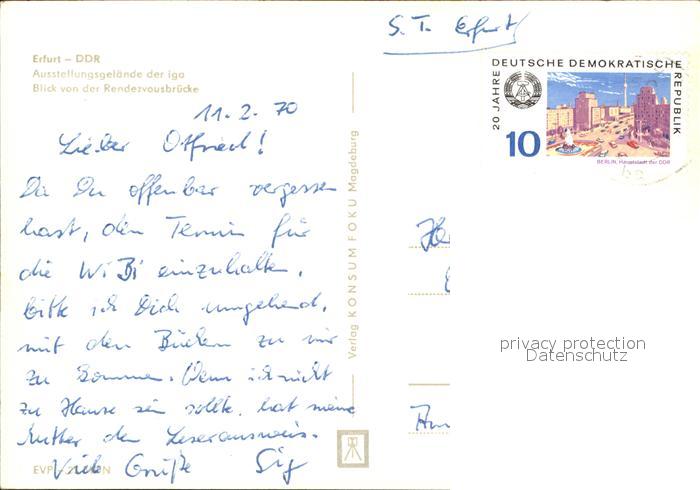 S. T. Erfurt
Erfurt – DDR
Ausstellungsgelände der iga
Blick von der Rendezvousbrücke
11. 2. 70
Lieber Otfried!
Da Du offenbar vergessen
hast, den Termin für
die WiBi einzuhalten,
bitte ich Dich umgehend,
mit den Büchern zu mir
zu kommen. Wenn ich nicht
zu Hause sein sollte, hat meine
Mutter den Leserausweis.
Viele Grüße Sig
EVP
Verlag KONSUM FOKU Magdeburg
20 JAHRE DEUTSCHE DEMOKRATISCHE REPUBLIK
10
BERLIN, Hauptstadt der DDR
privacy protection
Datenschutz